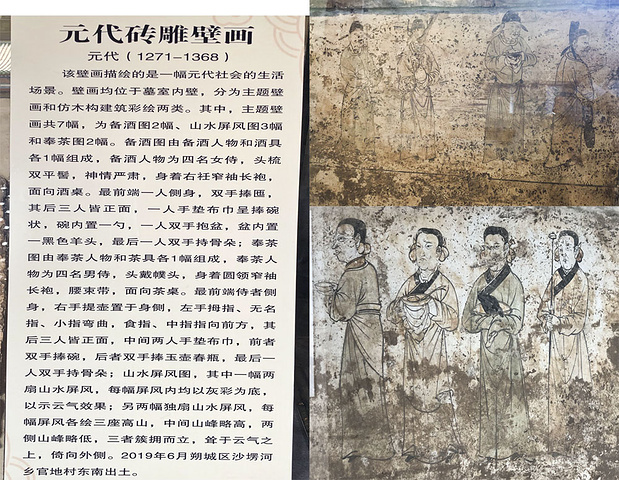 元代砖雕壁画
元代（1271-1368）
该壁画描绘的是一幅元代社会的生活
场景。壁画均位于墓室内壁，分为主题壁
画和仿木构建筑彩绘两类。其中，主题壁
画共7幅，为备酒图2幅、山水屏风图3幅
和奉茶图2幅。备酒图由备酒人物和酒具
各1幅组成，备酒人物为四名女侍，头梳
双平髻，神情严肃，身着右衽窄袖长袍，
面向酒桌。最前端一人侧身，双手捧匜，
其后三人皆正面，一人手垫布巾呈捧碗
状，碗内置一勺，一人双手抱盆，盆内置
一黑色羊头，最后一人双手持骨朵；奉茶
图由奉茶人物和茶具各1幅组成，奉茶人
物为四名男侍，头戴幞头，身着圆领窄袖
长袍，腰束带，面向茶桌。最前端侍者侧
身，右手提壶置于身侧，左手拇指、无名
指、小指弯曲，食指、中指指向前方，其
后三人皆正面，中间两人手垫布巾，前者
双手捧碗，后者双手捧玉壶春瓶，最后一
人双手持骨朵；山水屏风图，其中一幅两
扇山水屏风，每幅屏风内均以灰彩为底，
以示云气效果；另两幅独扇山水屏风，每
幅屏风各绘三座高山，中间山峰略高，两
侧山峰略低，三者簇拥而立，耸于云气之
上，倚向外侧。2019年6月朔城区沙塄河
乡官地村东南出土。